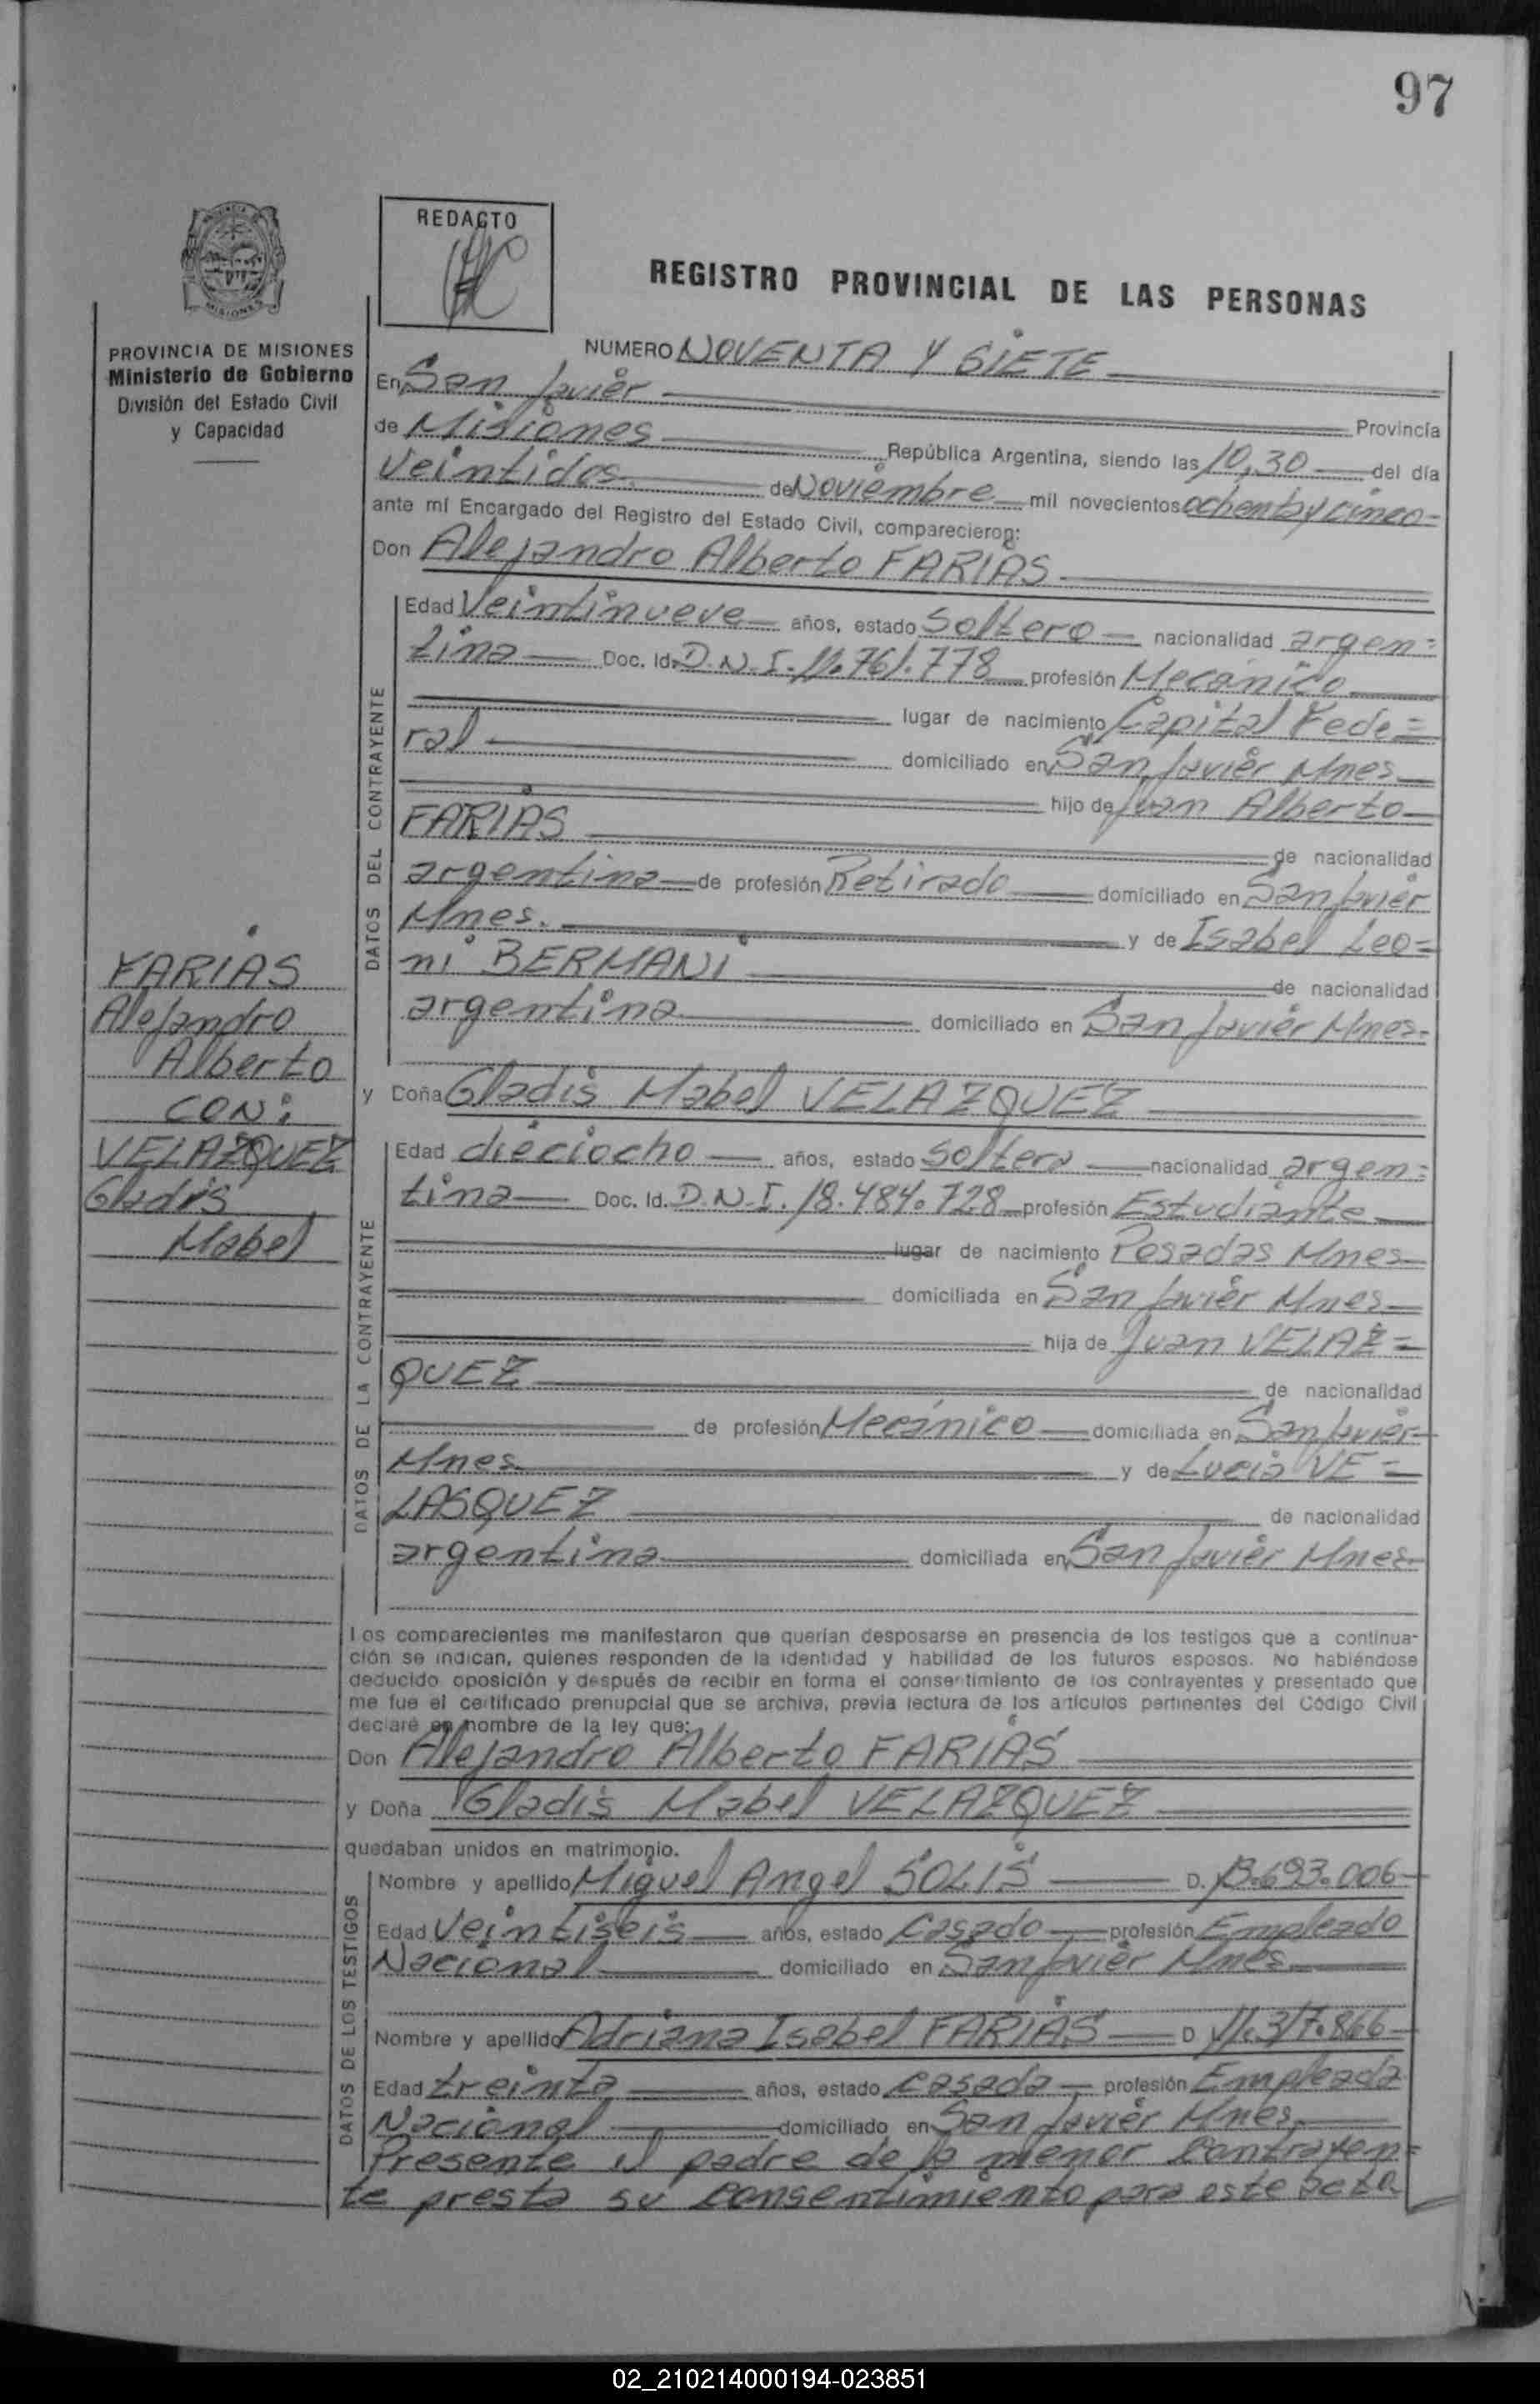 97
REDACTO
REGISTRO PROVINCIAL DE LAS PERSONAS
PROVINCIA DE MISIONES
Ministerio de Gobierno
División del Estado Civil
y Capacidad
FARIAS
Alejandro
Alberto
CON:
VELAZQUEZ
Gladis
Mabel
NUMERO NOVENTA Y SIETE
En San Javier
Provincia
de Misiones República Argentina, siendo las 10,30 del día
veintidos de Noviembre mil novecientos ochenta y cinco
ante mí Encargado del Registro del Estado Civil, comparecieron:
Don Alejandro Alberto FARIAS
DATOS DEL CONTRAYENTE
Edad Veintinueve años, estado Soltero nacionalidad argen=
tina Doc. Id. D.N.I. 11.761.778 profesión Mecánico
lugar de nacimiento Capital Fede=
ral domiciliado en San Javier Mnes
hijo de Juan Alberto
FARIAS de nacionalidad
argentina de profesión Retirado domiciliado en San Javier
Mnes. y de Isabel Leo=
ni BERMANI de nacionalidad
argentina domiciliado en San Javier Mnes.
y Doña Gladis Mabel VELAZQUEZ
DATOS DE LA CONTRAYENTE
Edad dieciocho años, estado Soltera nacionalidad argen=
tina Doc. Id. D.N.I. 18.484.728 profesión Estudiante
lugar de nacimiento Posadas Mnes
domiciliada en San Javier Mnes
hija de Juan VELAZ=
QUEZ de nacionalidad
de profesión Mecánico domiciliada en San Javier
Mnes y de Lucia VE=
LASQUEZ de nacionalidad
argentina domiciliada en San Javier Mnes
Los comparecientes me manifestaron que querían desposarse en presencia de los testigos que a continua-
ción se indican, quienes responden de la identidad y habilidad de los futuros esposos. No habiéndose
deducido oposición y después de recibir en forma el consentimiento de los contrayentes y presentado que
me fue el certificado prenupcial que se archiva, previa lectura de los artículos pertinentes del Código Civil
declaré en nombre de la ley que:
Don Alejandro Alberto FARIAS
y Doña Gladis Mabel VELAZQUEZ
quedaban unidos en matrimonio.
DATOS DE LOS TESTIGOS
Nombre y apellido Miguel Angel SOLIS D. 13.693.006
Edad Veintiseis años, estado Casado profesión Empleado
Nacional domiciliado en San Javier Mnes
Nombre y apellido Adriana Isabel FARIAS D 11.317.866
Edad treinta años, estado casada profesión Empleada
Nacional domiciliado en San Javier Mnes.
Presente el padre de la menor contrayen=
te presta su consentimiento para este acta
02_210214000194-023851